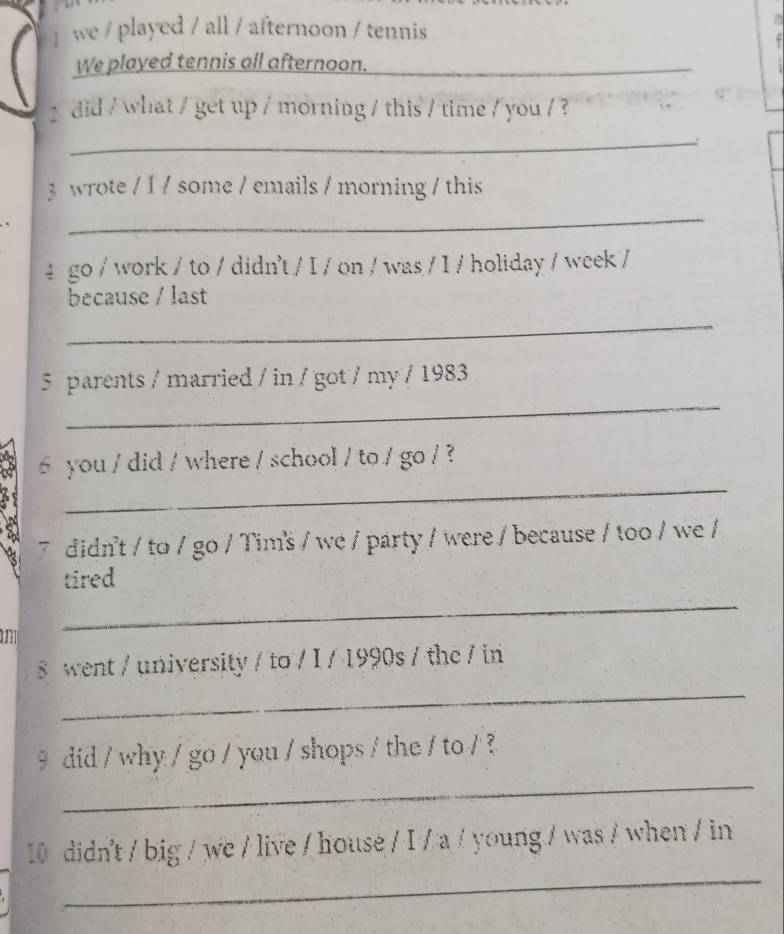 1 we / played / all / afternoon / tennis
We played tennis all afternoon.
2 did / what / get up / morning / this / time / you / ?
3 wrote / I / some / emails / morning / this
4 go / work / to / didn't / I / on / was / I / holiday / week /
because / last
5 parents / married / in / got / my / 1983
6 you / did / where / school / to / go / ?
7 didn't / to / go / Tim's / we / party / were / because / too / we /
tired
8 went / university / to / I / 1990s / the / in
9 did / why / go / you / shops / the / to / ?
10 didn't / big / we / live / house / I / a / young / was / when / in